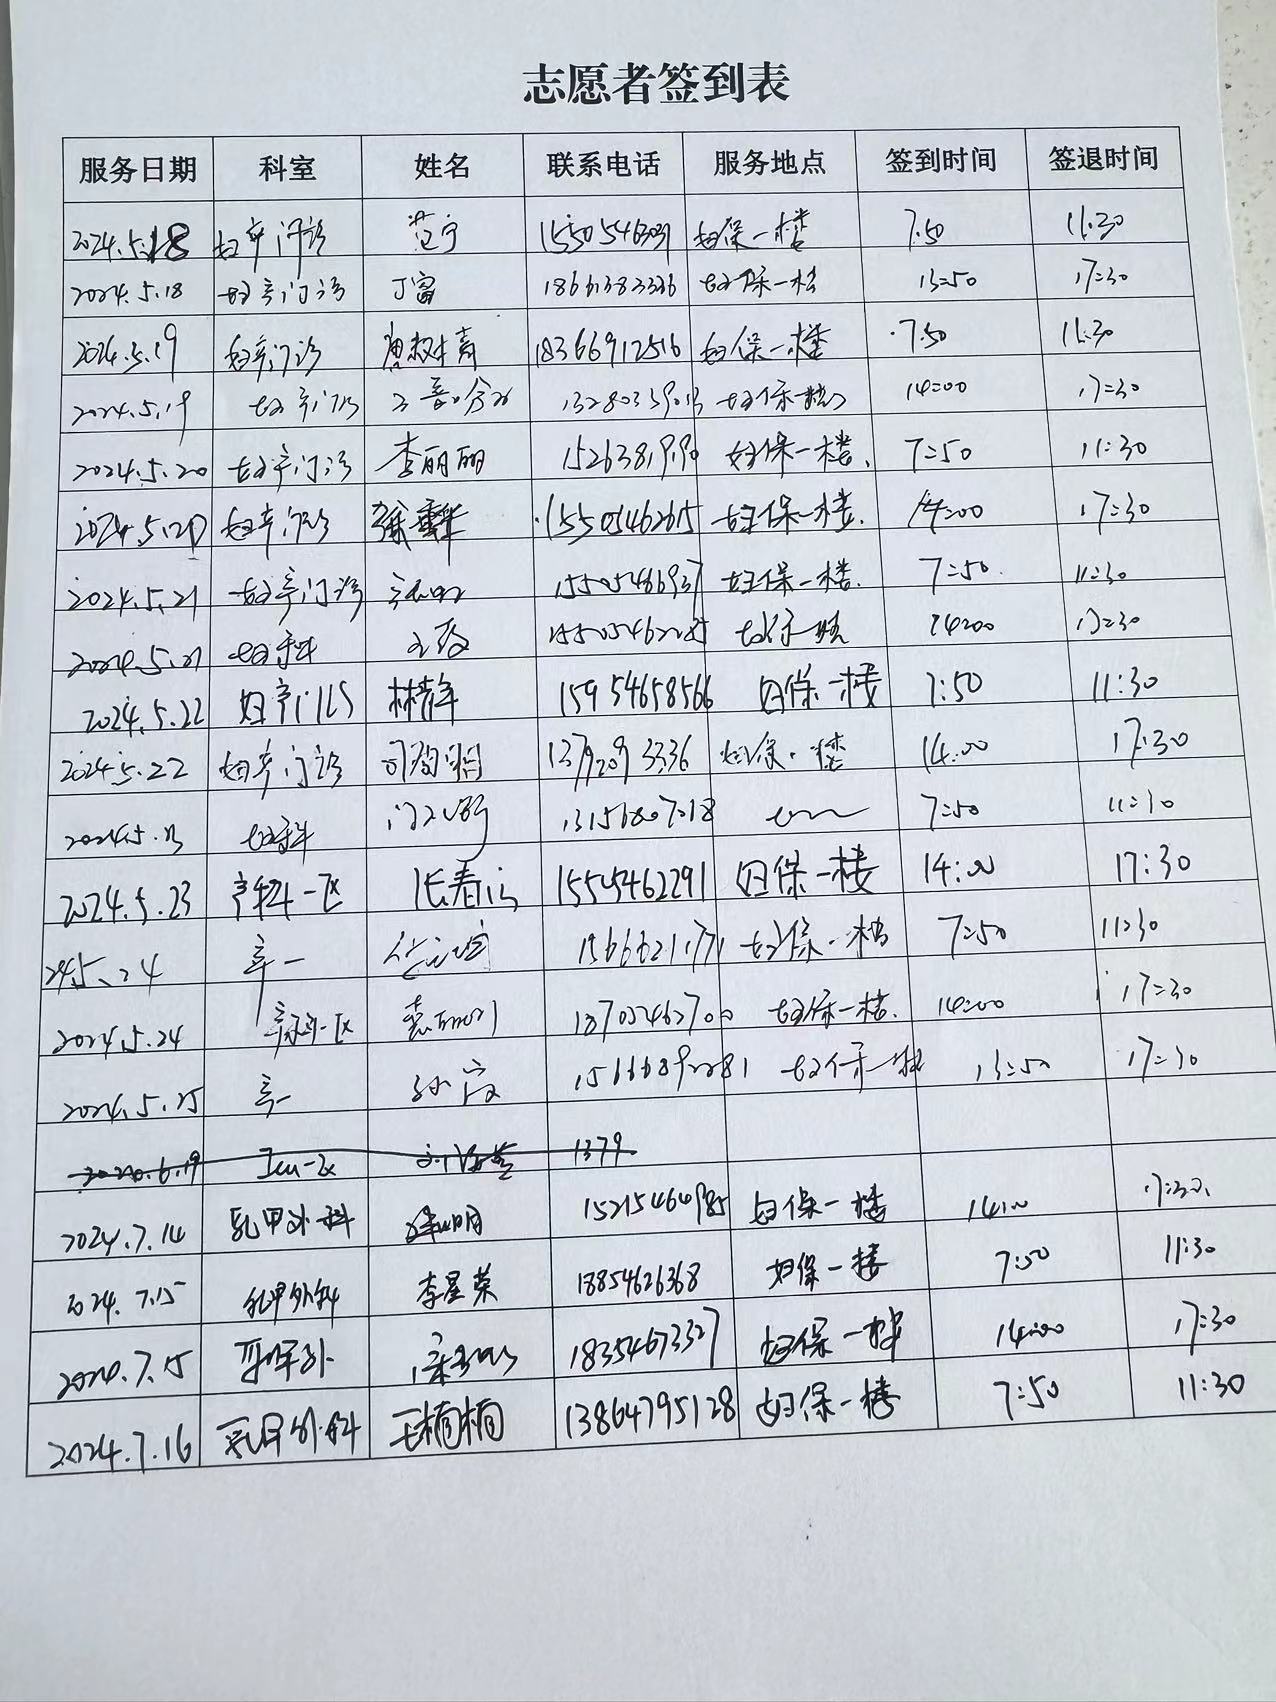 志愿者签到表
服务日期 科室 姓名 联系电话 服务地点 签到时间 签退时间
2024.5.18 妇产门诊 范宁 妇保一楼 7:50 11:30
2024.5.18 妇产门诊 丁富 18661383336 妇保一楼 13:50 17:30
2024.5.19 妇产门诊 18366912516 妇保一楼 7:50 11:30
2024.5.19 妇产门诊 妇保一楼 14:00 17:30
2024.5.20 妇产门诊 李丽丽 妇保一楼 7:50 11:30
2024.5.20 妇产门诊 15505462615 妇保一楼 14:00 17:30
2024.5.21 妇产门诊 15505466937 妇保一楼 7:50 11:30
2024.5.21 妇产科 妇保一楼 14:00 17:30
2024.5.22 妇产门诊 林静 15954658566 妇保一楼 7:50 11:30
2024.5.22 妇产门诊 13792093336 妇保一楼 14:00 17:30
2024.5.23 妇产科 13156807218 7:50 11:30
2024.5.23 产科一区 15545462291 妇保一楼 14:00 17:30
24.5.24 产一 妇保一楼 7:50 11:30
2024.5.24 产科一区 妇保一楼 14:00 17:30
2024.5.25 产一 妇保一楼 13:50 17:30
1379
2024.7.14 乳甲外科 15215464985 妇保一楼 14:00 17:30
2024.7.15 乳甲外科 李星荣 18854626368 妇保一楼 7:50 11:30
2024.7.15 18354673327 妇保一楼 14:00 17:30
2024.7.16 乳甲外科 王楠楠 13864795128 妇保一楼 7:50 11:30